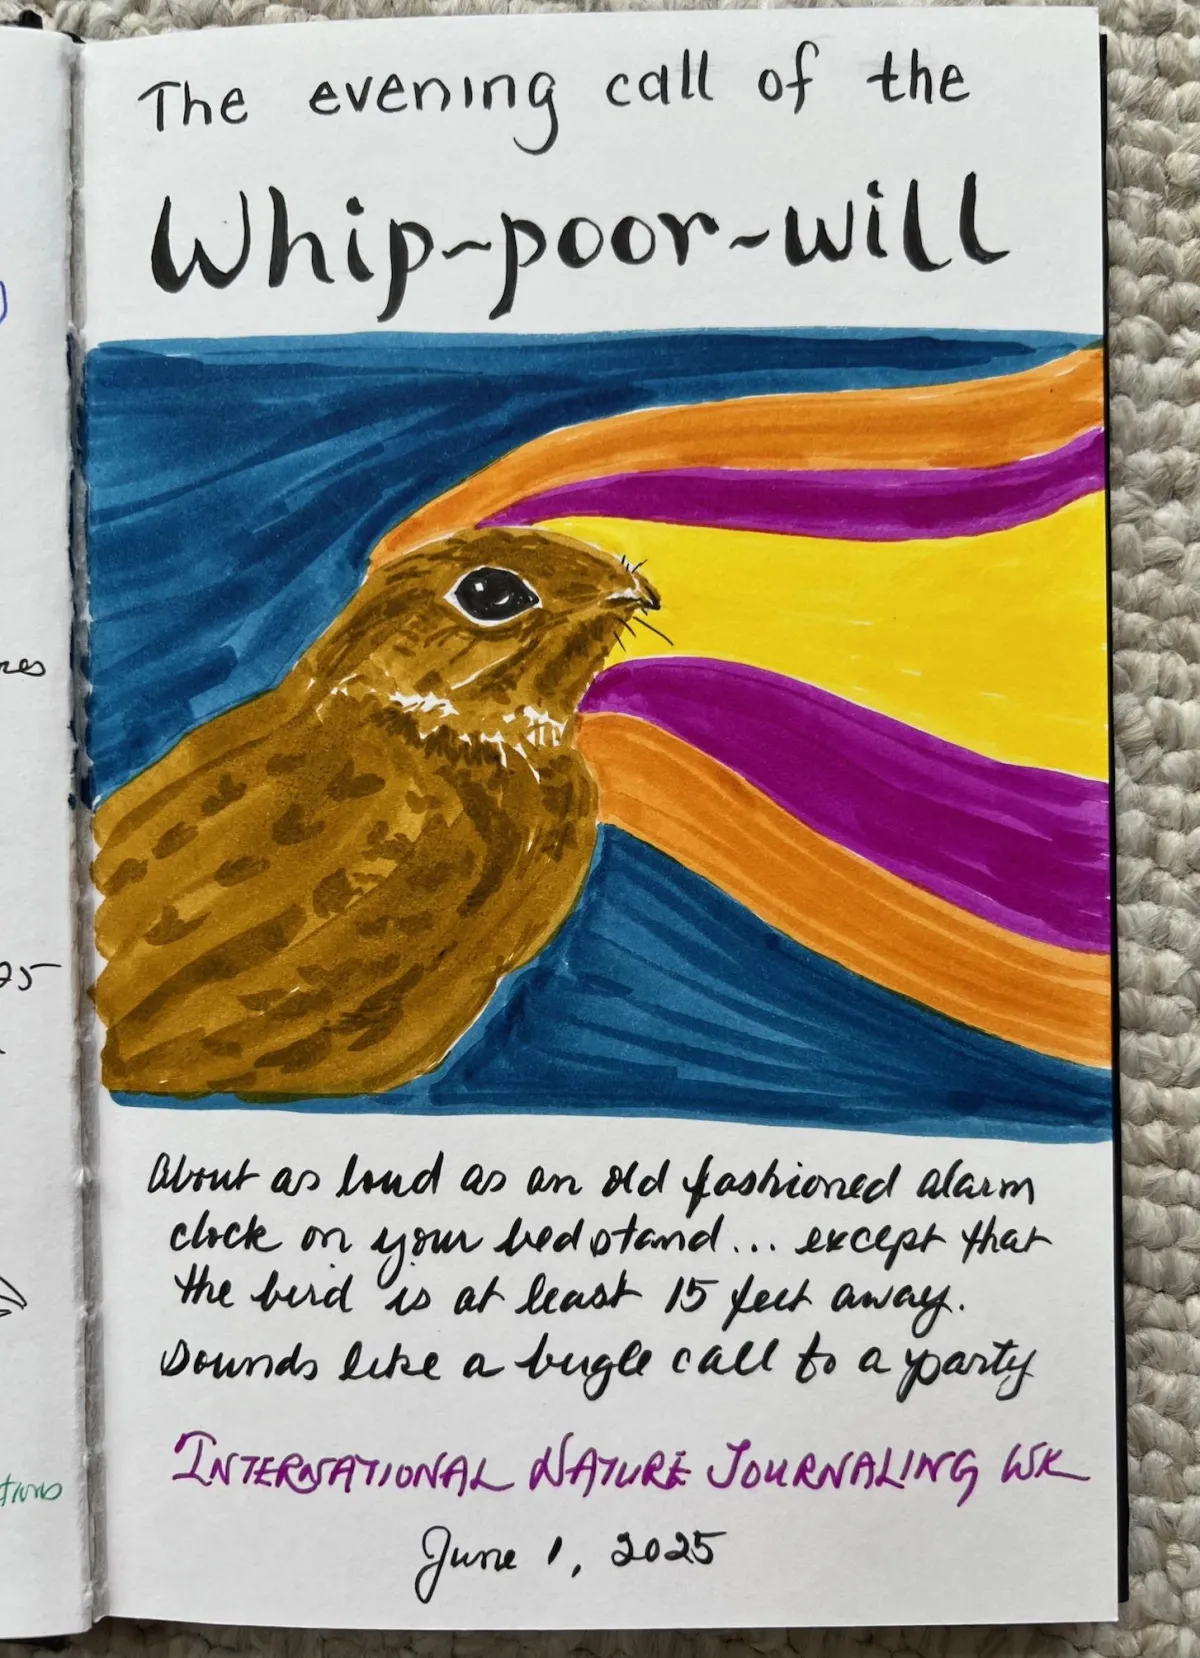 The evening call of the
Whip-poor-will
About as loud as an old fashioned alarm
clock on your bedstand... except that
the bird is at least 15 feet away.
Sounds like a bugle call to a party
INTERNATIONAL NATURE JOURNALING WK
June 1, 2025